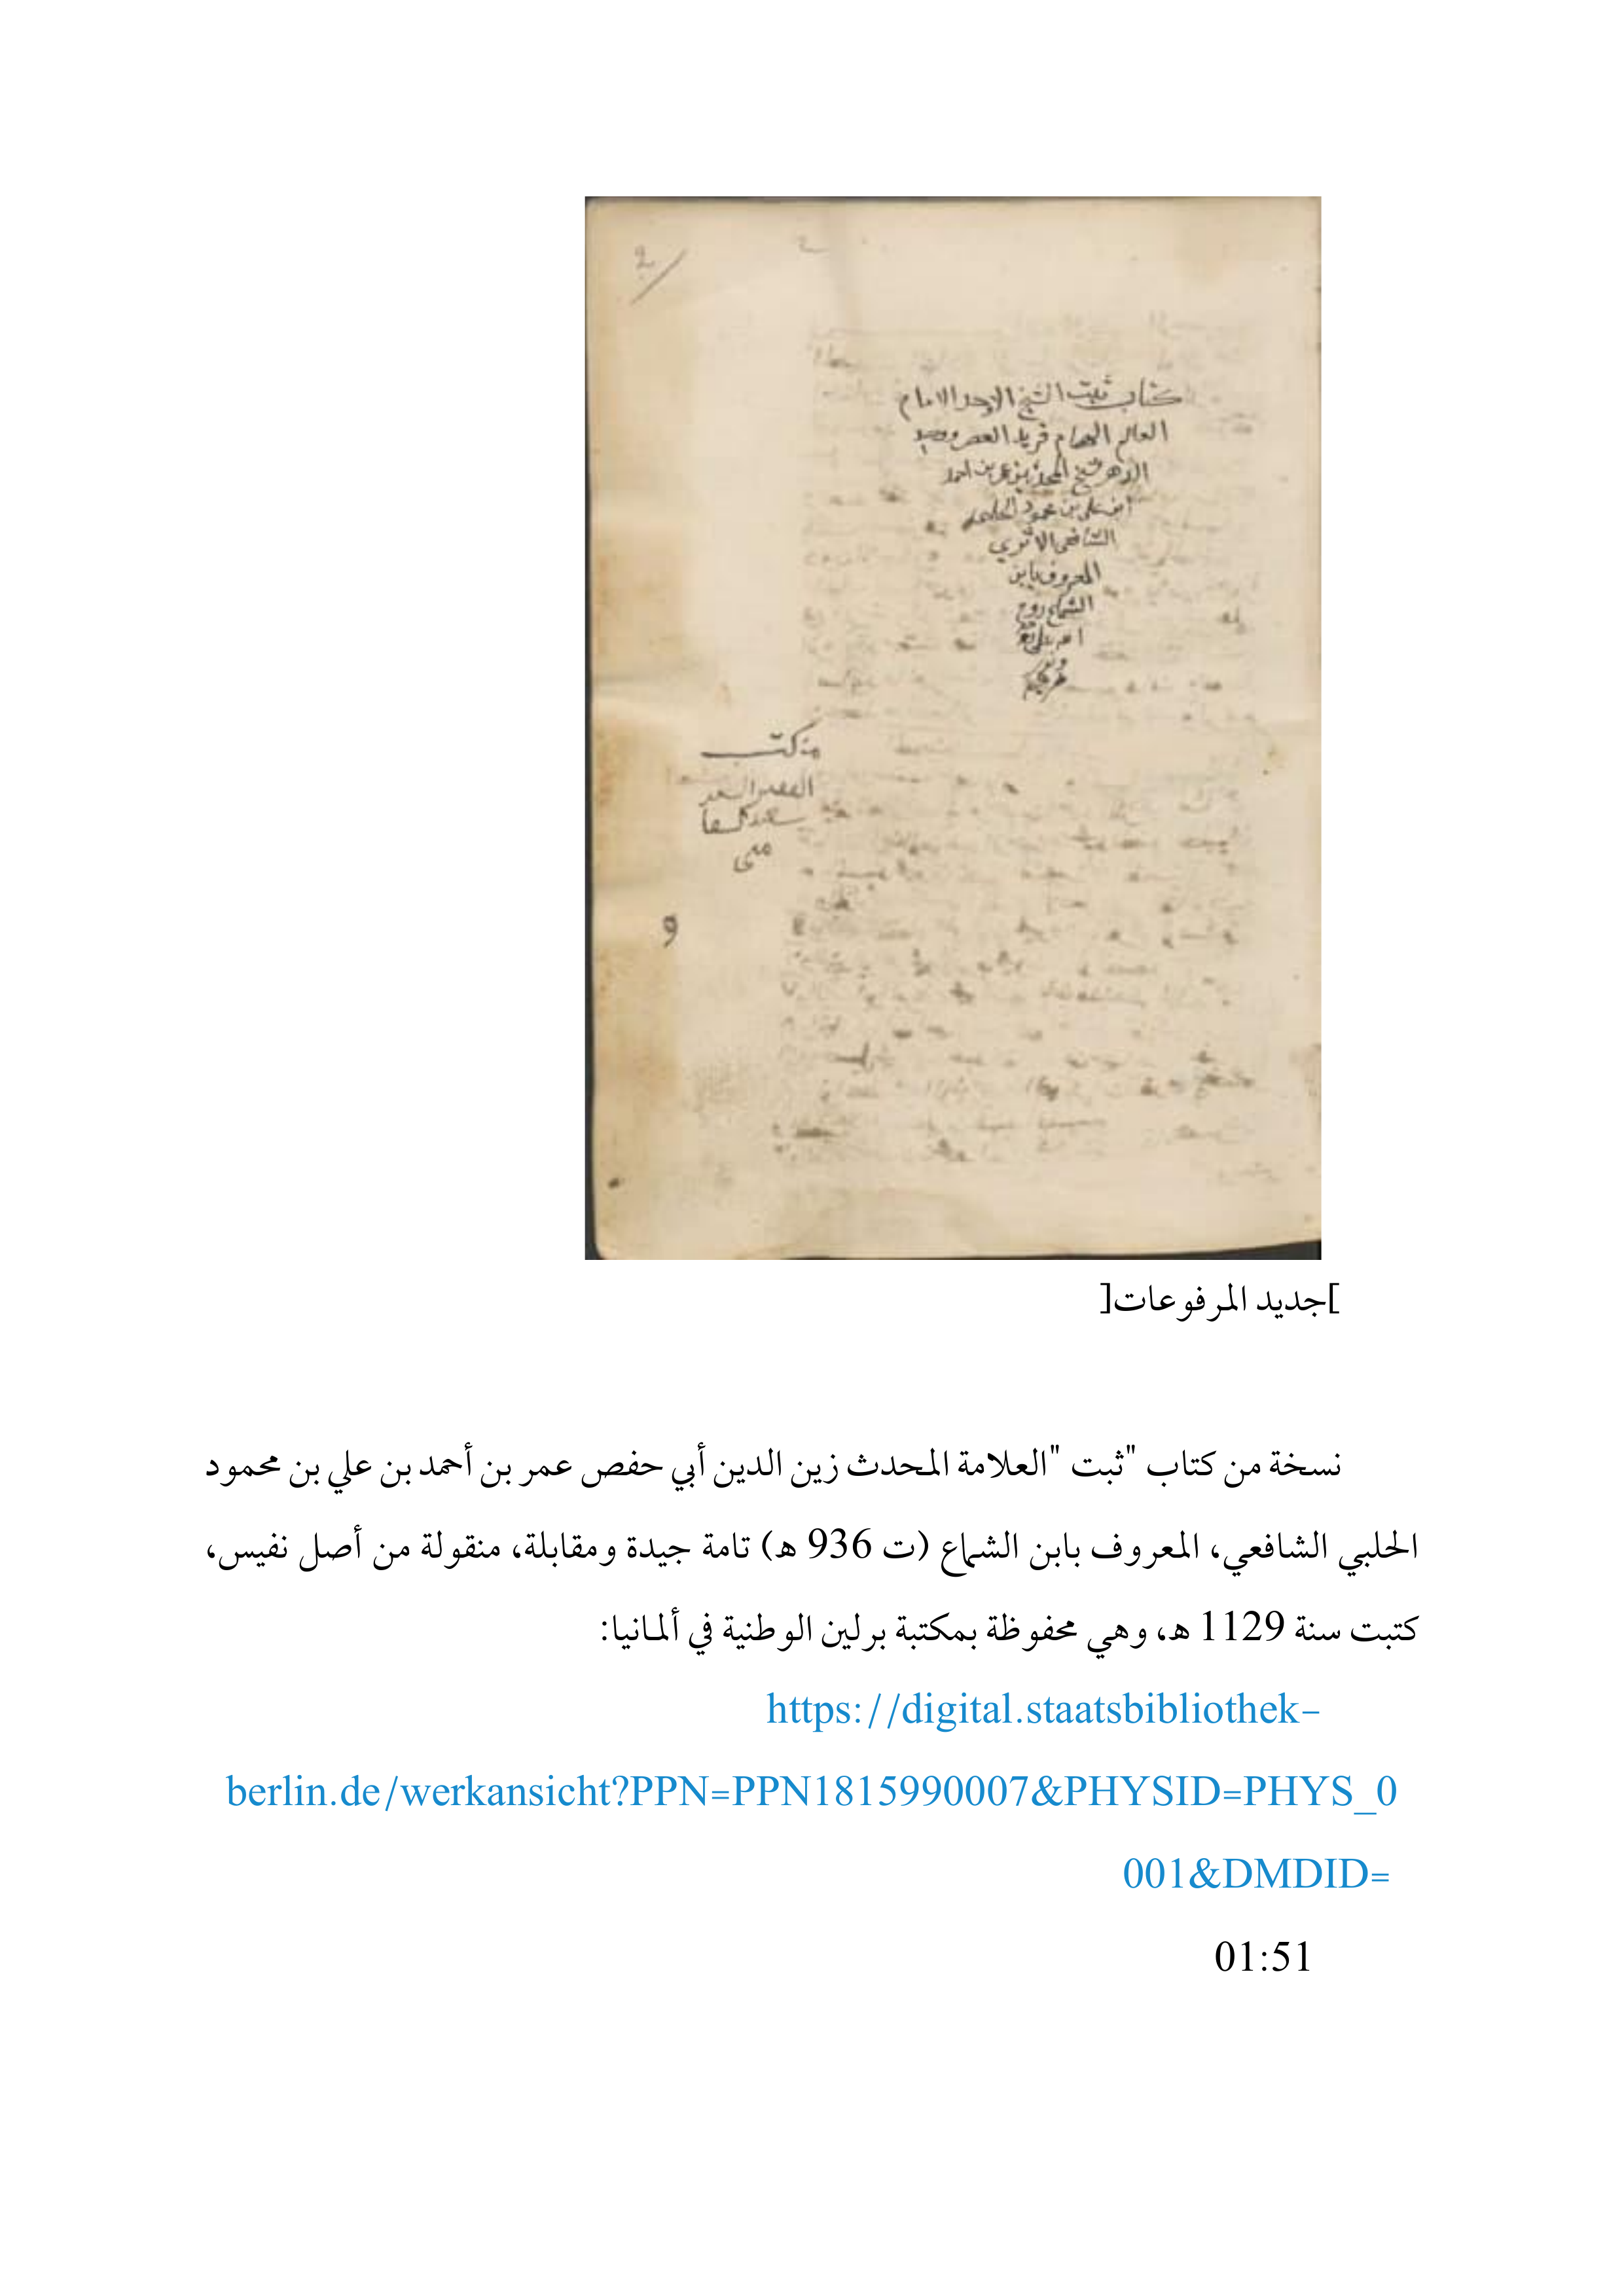 كتاب ثبت الشيخ الاوحد الامام
العالم الهمام فريد العصر ووحيد
الدهر شيخ المحدثين عمر بن احمد
ابن علي بن محمود الحلبي
الشافعي الاثري
المعروف بابن
الشماع روح
من كتب
الفقير
و
[جديد المرفوعات]
نسخة من كتاب "ثبت "العلامة المحدث زين الدين أبي حفص عمر بن أحمد بن علي بن محمود
الحلبي الشافعي، المعروف بابن الشماع (ت 936 ه) تامة جيدة ومقابلة، منقولة من أصل نفيس،
كتبت سنة 1129 ه، وهي محفوظة بمكتبة برلين الوطنية في ألمانيا:
https://digital.staatsbibliothek-
berlin.de/werkansicht?PPN=PPN1815990007&PHYSID=PHYS_0
001&DMDID=
01:51